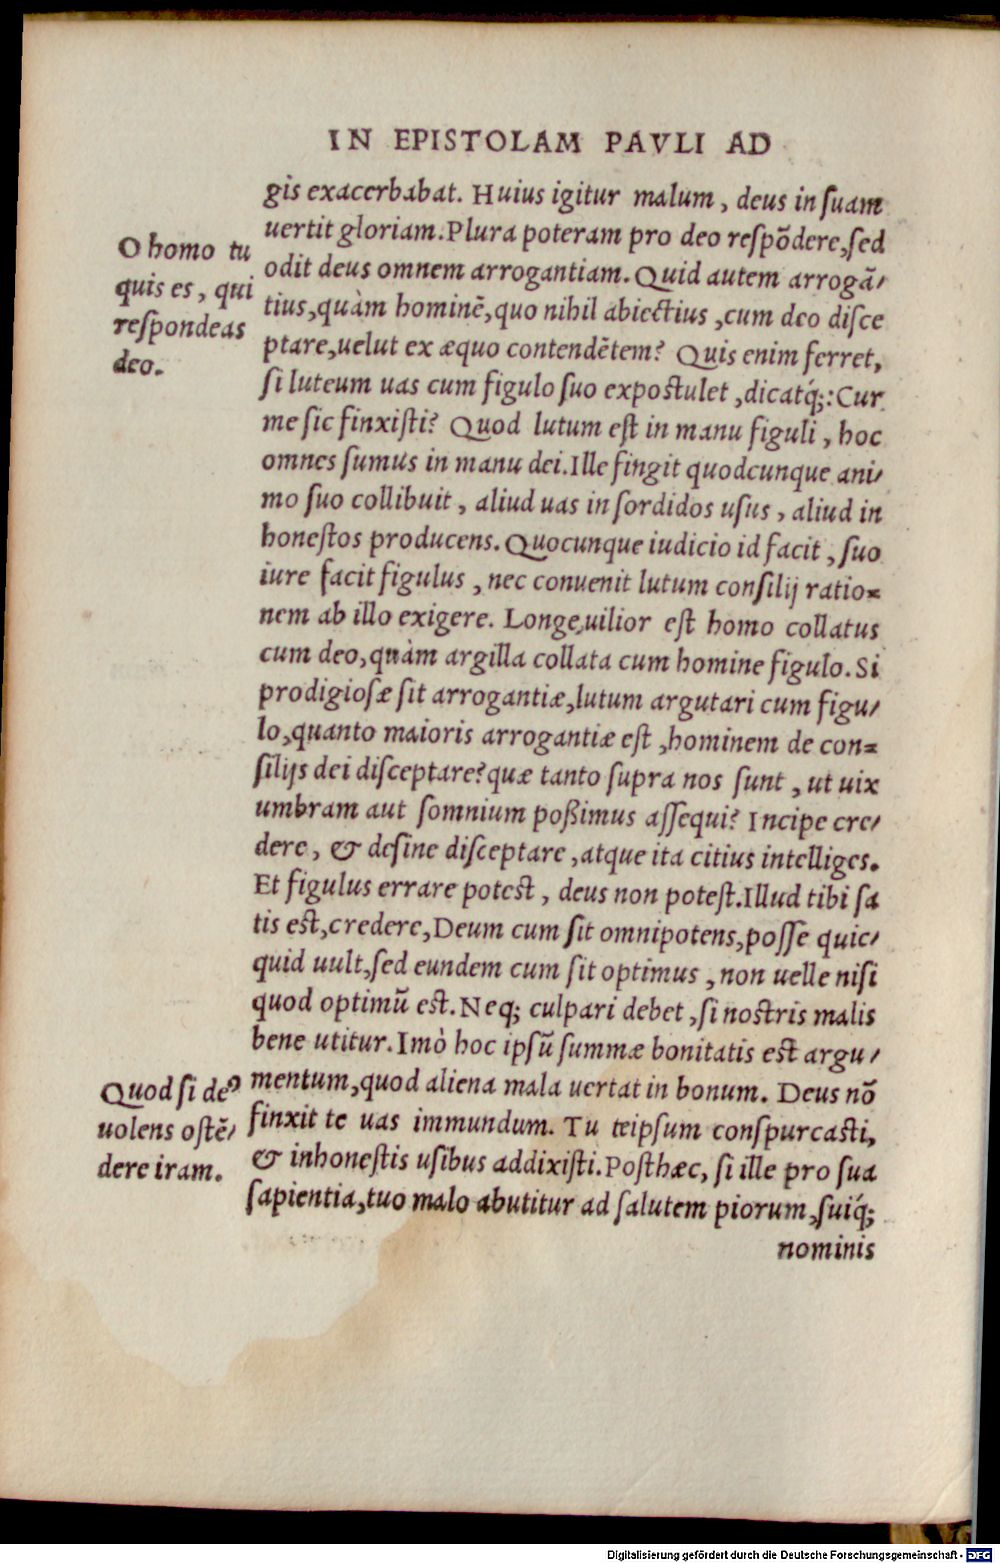 IN EPISTOLAM PAVLI AD
gis exacerbabat. Huius igitur malum, deus in suam
uertit gloriam. Plura poteram pro deo respõdere, sed
odit deus omnem arrogantiam. Quid autem arrogã/
tius, quàm hominẽ, quo nihil abiectius, cum deo disce
ptare, uelut ex æquo contendẽtem? Quis enim ferret,
si luteum uas cum figulo suo expostulet, dicatq́;: Cur
me sic finxisti? Quod lutum est in manu figuli, hoc
omnes sumus in manu dei. Ille fingit quodcunque ani/
mo suo collibuit, aliud uas in sordidos usus, aliud in
honestos producens. Quocunque iudicio id facit, suo
iure facit figulus, nec conuenit lutum consilij ratio=
nem ab illo exigere. Longe, uilior est homo collatus
cum deo, quàm argilla collata cum homine figulo. Si
prodigiosæ sit arrogantiæ, lutum argutari cum figu/
lo, quanto maioris arrogantiæ est, hominem de con=
silijs dei disceptare? quæ tanto supra nos sunt, ut uix
umbram aut somnium poßimus assequi? Incipe cre/
dere, & desine disceptare, atque ita citius intelliges.
Et figulus errare potest, deus non potest. Illud tibi sa
tis est, credere, Deum cum sit omnipotens, posse quic/
quid uult, sed eundem cum sit optimus, non uelle nisi
quod optimũ est. Neq; culpari debet, si nostris malis
bene utitur. Imò hoc ipsũ summæ bonitatis est argu/
mentum, quod aliena mala uertat in bonum. Deus nõ
finxit te uas immundum. Tu teipsum conspurcasti,
& inhonestis usibus addixisti. Posthæc, si ille pro sua
sapientia, tuo malo abutitur ad salutem piorum, suiq́;
nominis
O homo tu
quis es, qui
respondeas
deo.
Quod si deꝰ
uolens ostẽ/
dere iram.
Digitalisierung gefördert durch die Deutsche Forschungsgemeinschaft - DFG